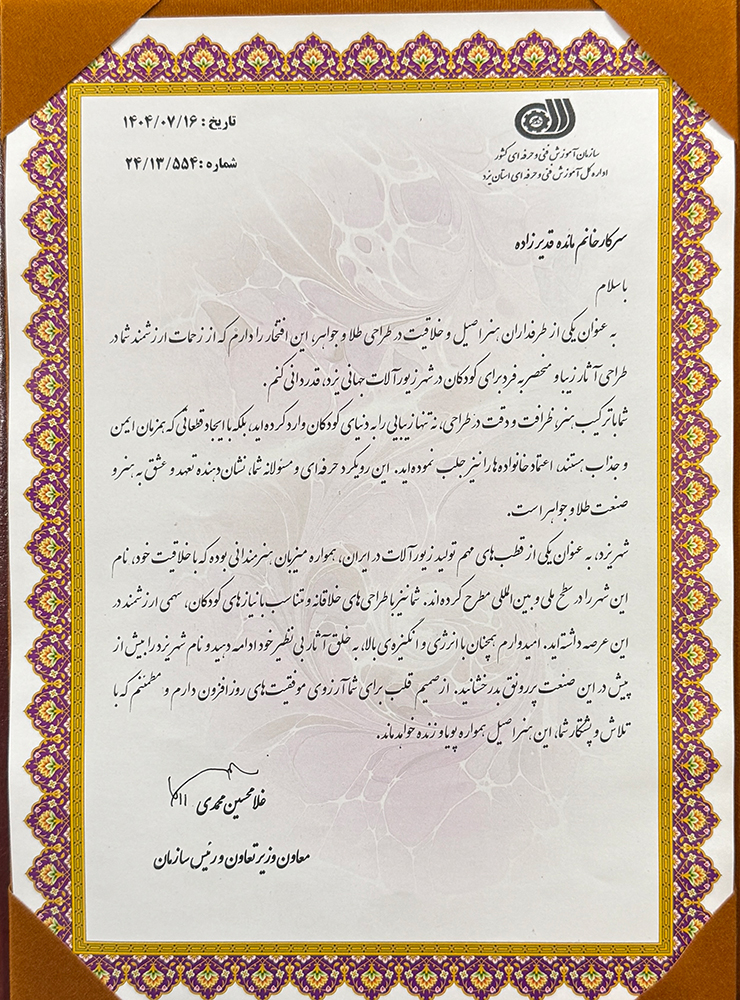 تاریخ : ۱۴۰۴/۰۷/۱۶
شماره : ۲۴/۱۳/۵۵۴
سازمان آموزش فنی و حرفه ای کشور
اداره کل آموزش فنی و حرفه ای استان یزد
سرکار خانم مائده قدیرزاده
با سلام
به عنوان یکی از طرفداران هنر اصیل و خلاقیت در طراحی طلا و جواهر، این افتخار را دارم که از زحمات ارزشمند شما در
طراحی آثار زیبا و منحصر به فرد برای کودکان در شهر زیورآلات جهانی یزد، قدردانی کنم .
شما با ترکیب هنر، ظرافت و دقت در طراحی، نه تنها زیبایی را به دنیای کودکان وارد کرده اید، بلکه با ایجاد قطعاتی که همزمان ایمن
و جذاب هستند، اعتماد خانواده ها را نیز جلب نموده اید. این رویکرد حرفه ای و مسئولانه شما، نشان دهنده تعهد و عشق به هنر و
صنعت طلا و جواهر است.
شهر یزد، به عنوان یکی از قطب های مهم تولید زیورآلات در ایران، همواره میزبان هنرمندانی بوده که با خلاقیت خود، نام
این شهر را در سطح ملی و بین المللی مطرح کرده اند. شما نیز با طراحی های خلاقانه و متناسب با نیازهای کودکان، سهمی ارزشمند در
این عرصه داشته اید. امیدوارم همچنان با انرژی و انگیزه ی بالا، به خلق آثار بی نظیر خود ادامه دهید و نام شهر یزد را بیش از
پیش در این صنعت پررونق بدرخشانید. از صمیم قلب برای شما آرزوی موفقیت های روزافزون دارم و مطمئنم که با
تلاش و پشتکار شما، این هنر اصیل همواره پویا و زنده خواهد ماند.
غلامحسین محمدی
معاون وزیر تعاون و رئیس سازمان